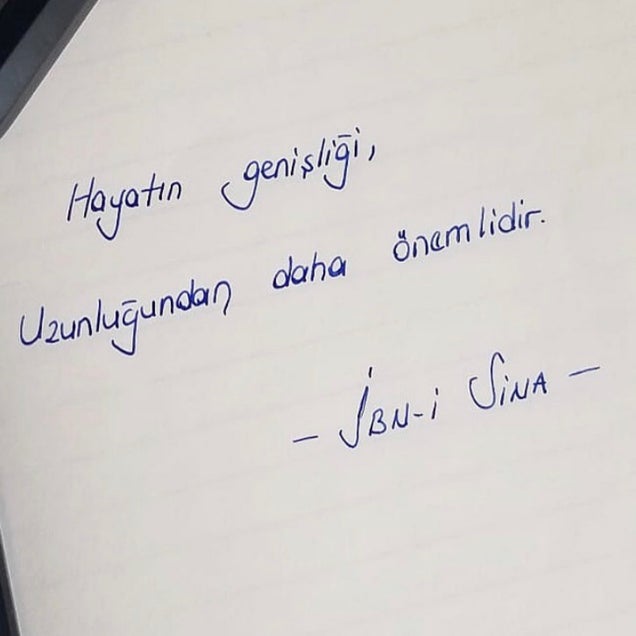 Hayatın genişliği,
Uzunluğundan daha önemlidir.
- İBN-i SİNA -